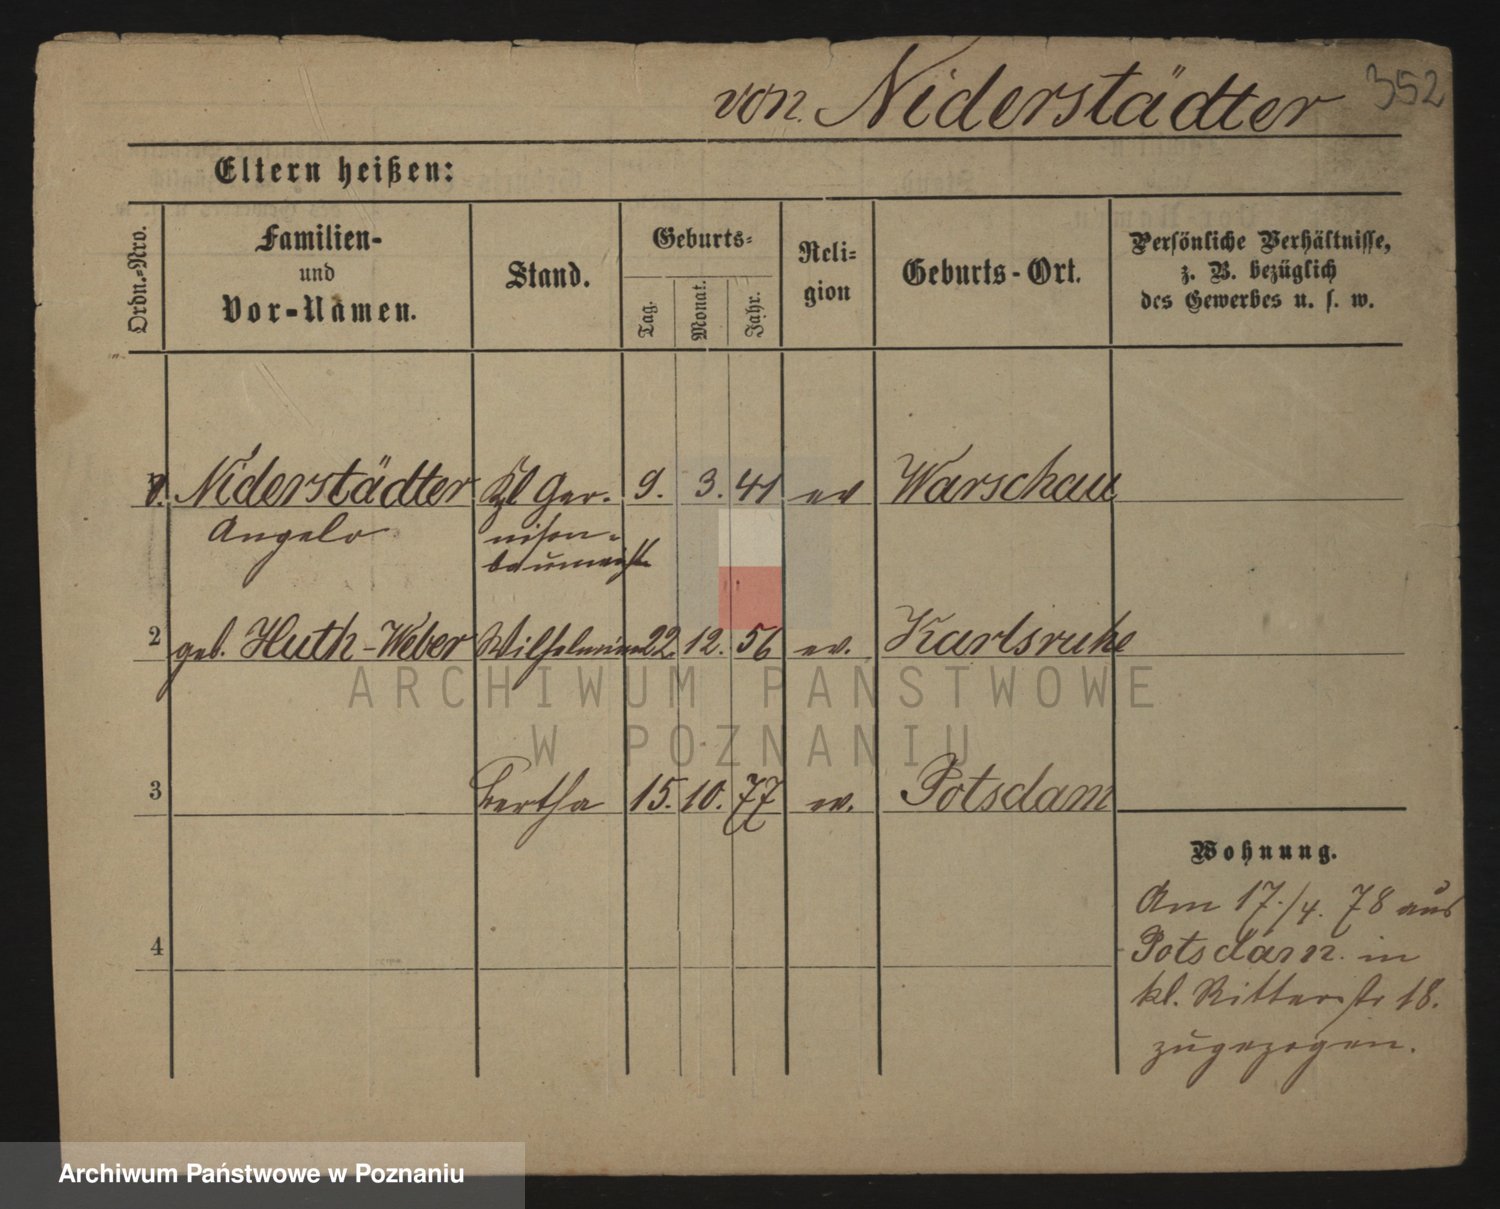 von Niderstädter 352
Eltern heißen:
Ordn.-Nro.
Familien-
und
Vor-Namen.
Stand.
Geburts-
Tag.
Monat.
Jahr.
Reli-
gion
Geburts-Ort.
Persönliche Verhältnisse,
z. B. bezüglich
des Gewerbes u. s. w.
v. Niderstädter Kgl Gar- 9. 3. 41 ev Warschau
Angelo nison-
baumeist
2 geb. Huth-Weber Wilhelmine 22. 12. 56 ev. Karlsruhe
3 Bertha 15. 10. 77 ev. Potsdam
4
Wohnung.
Am 17./4. 78 aus
Potsdam in
kl. Ritterstr 18.
zugezogen.
ARCHIWUM PAŃSTWOWE
W POZNANIU
Archiwum Państwowe w Poznaniu